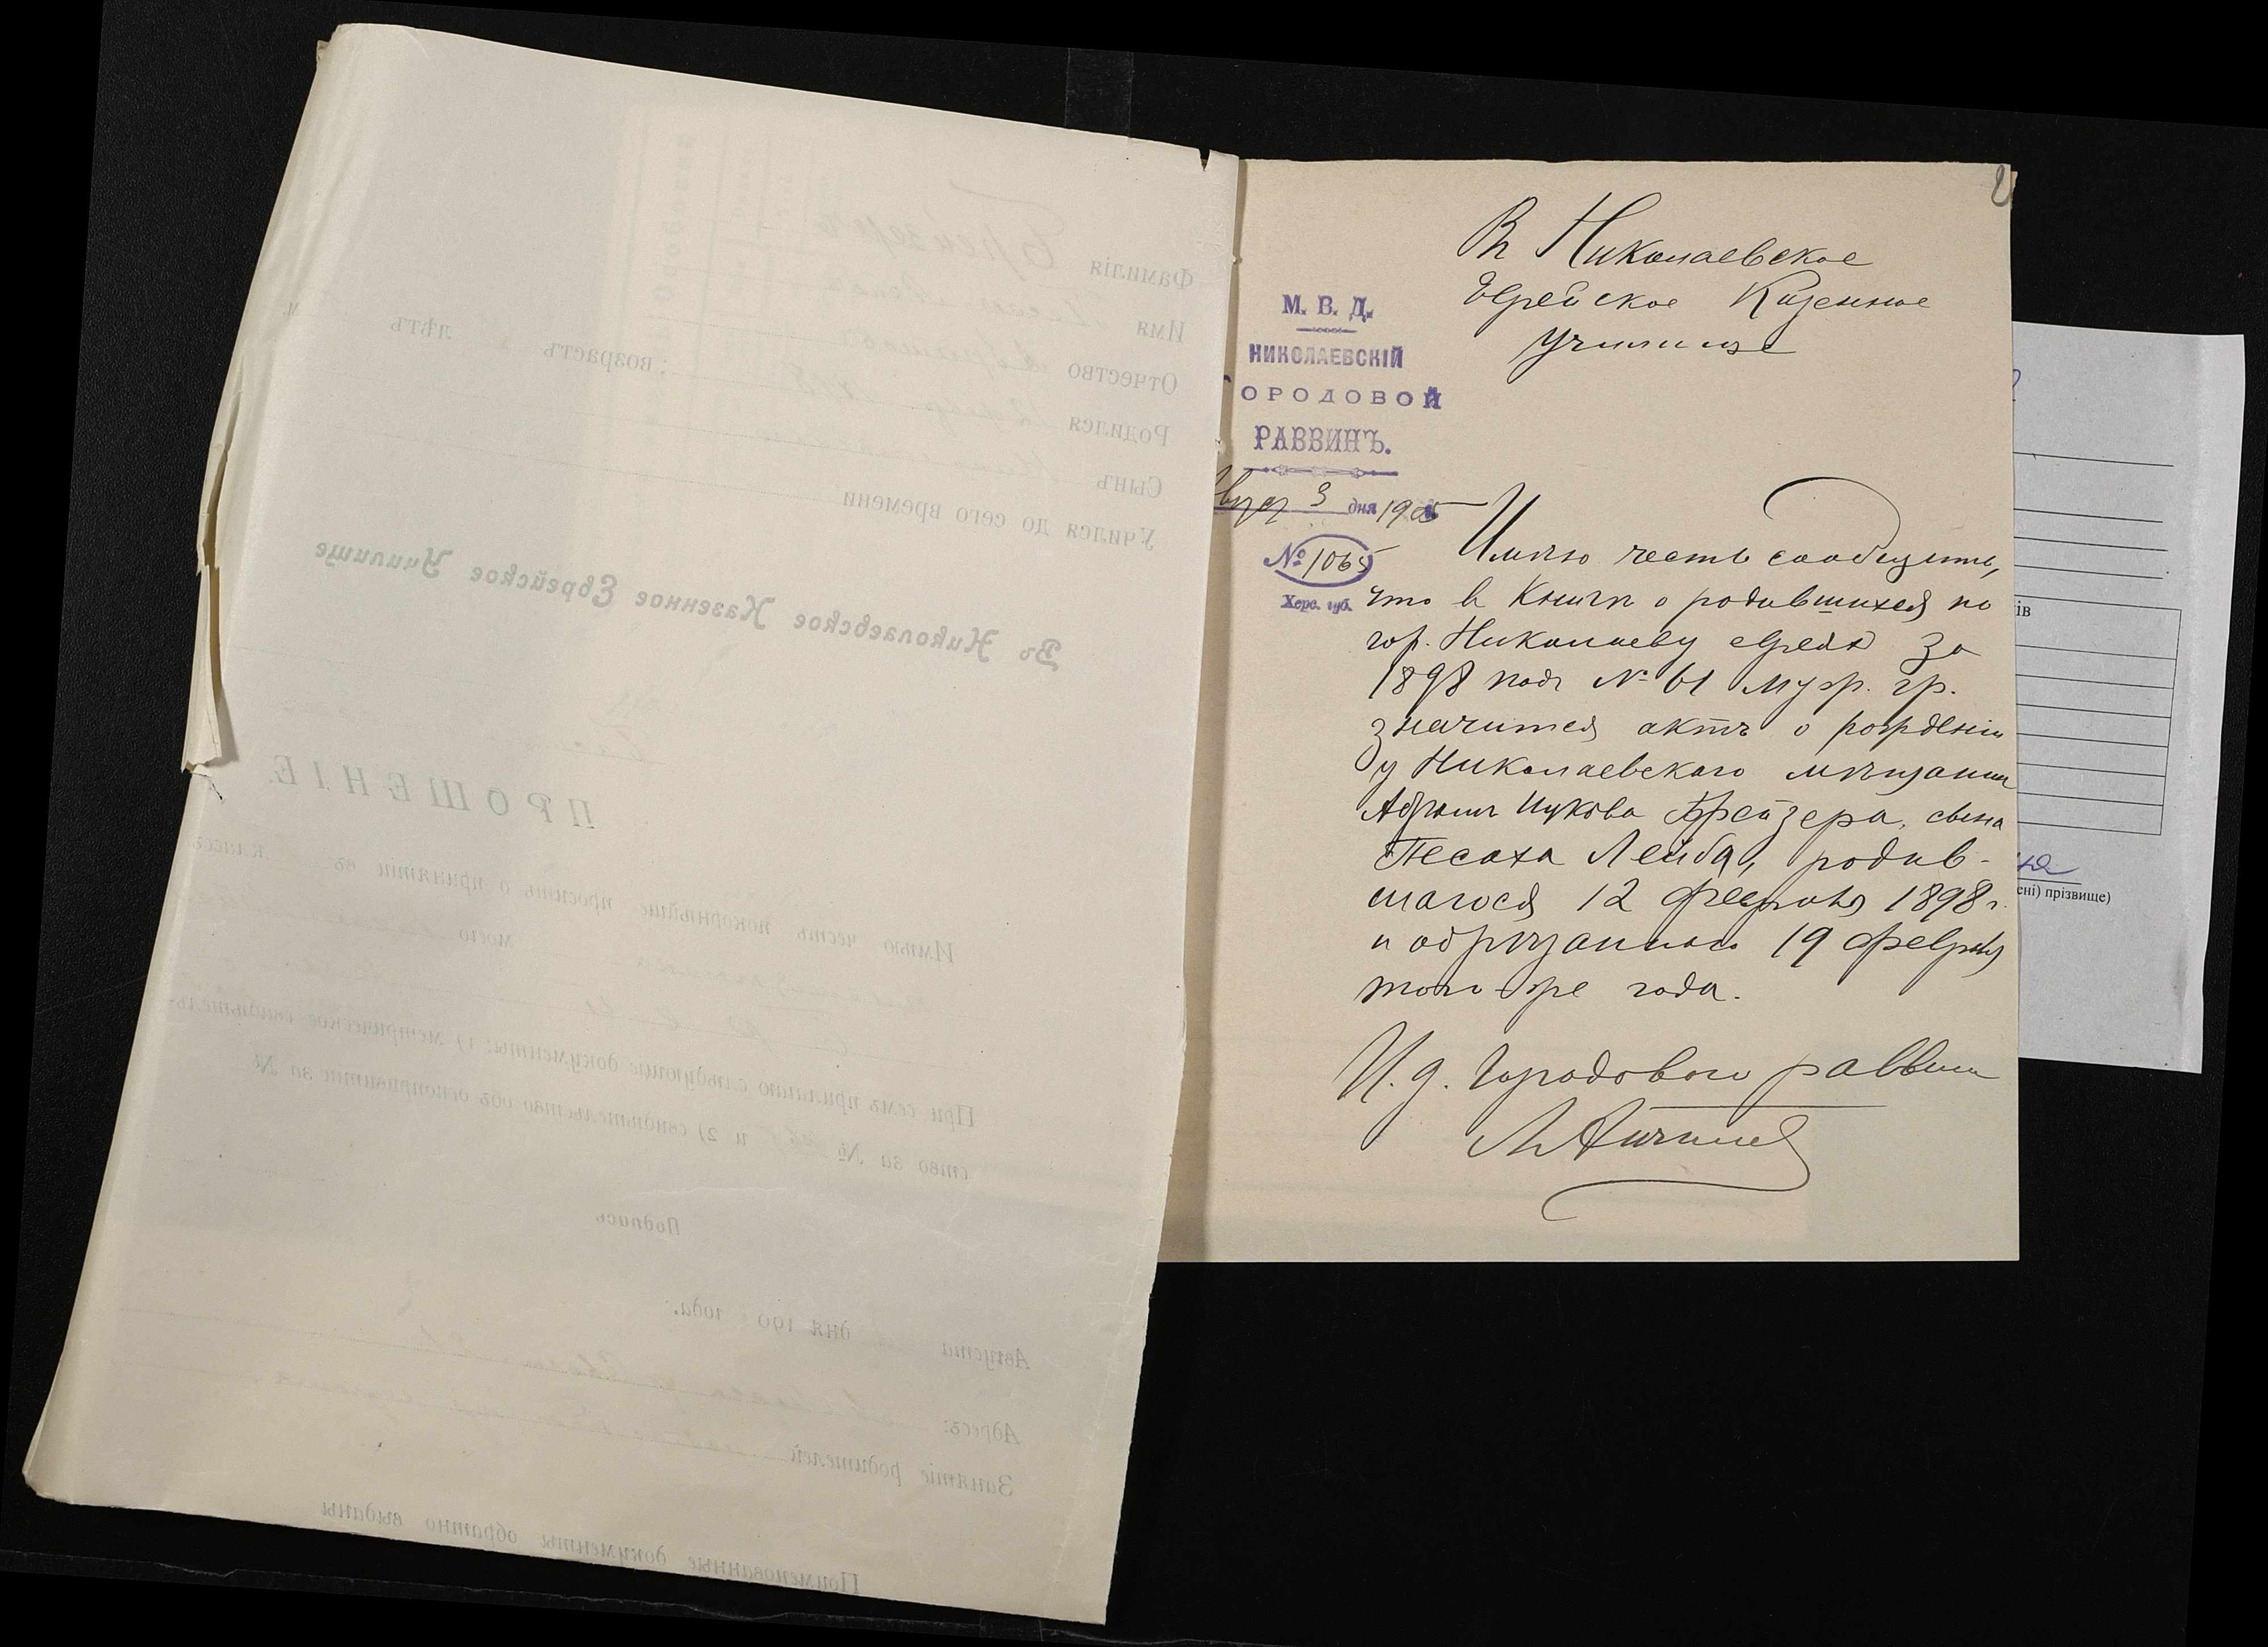 2
Въ Николаевское
Еврейское Казенное
Училище
М. В. Д.
НИКОЛАЕВСКІЙ
ОРОДОВОЙ
РАВВИНЪ.
3 дня 1905
№ 1065
Херс. губ.
Имѣю честь сообщить,
что въ книгѣ о родившихся по
гор. Николаеву евреяхъ за
1898 подъ № 61 муж. гр.
значится актъ о рожденіи
у Николаевскаго мѣщанина
Абрама Ицкова Брейзера, сына
Песаха Лейба, родив-
шагося 12 февраля 1898 г.
и обрѣзаннаго 19 февраля
того-же года.
И. д. Городового раввина
Фамилія Брейзеръ
Имя
Отчество
Родился ; возрастъ лѣтъ
Сынъ
Учился до сего времени
Въ Николаевское Казенное Еврейское Училище
ПРОШЕНІЕ
Имѣю честь покорнѣйше просить о принятіи въ классъ
моего
При семъ прилагаю слѣдующіе документы: 1) метрическое свидѣтель-
ство за № и 2) свидѣтельство объ оспопривитіи за №
Подпись
Августа дня 190 года.
Адресъ:
Занятіе родителей
Поименованные документы обратно выданы
ів
ені) прізвище)